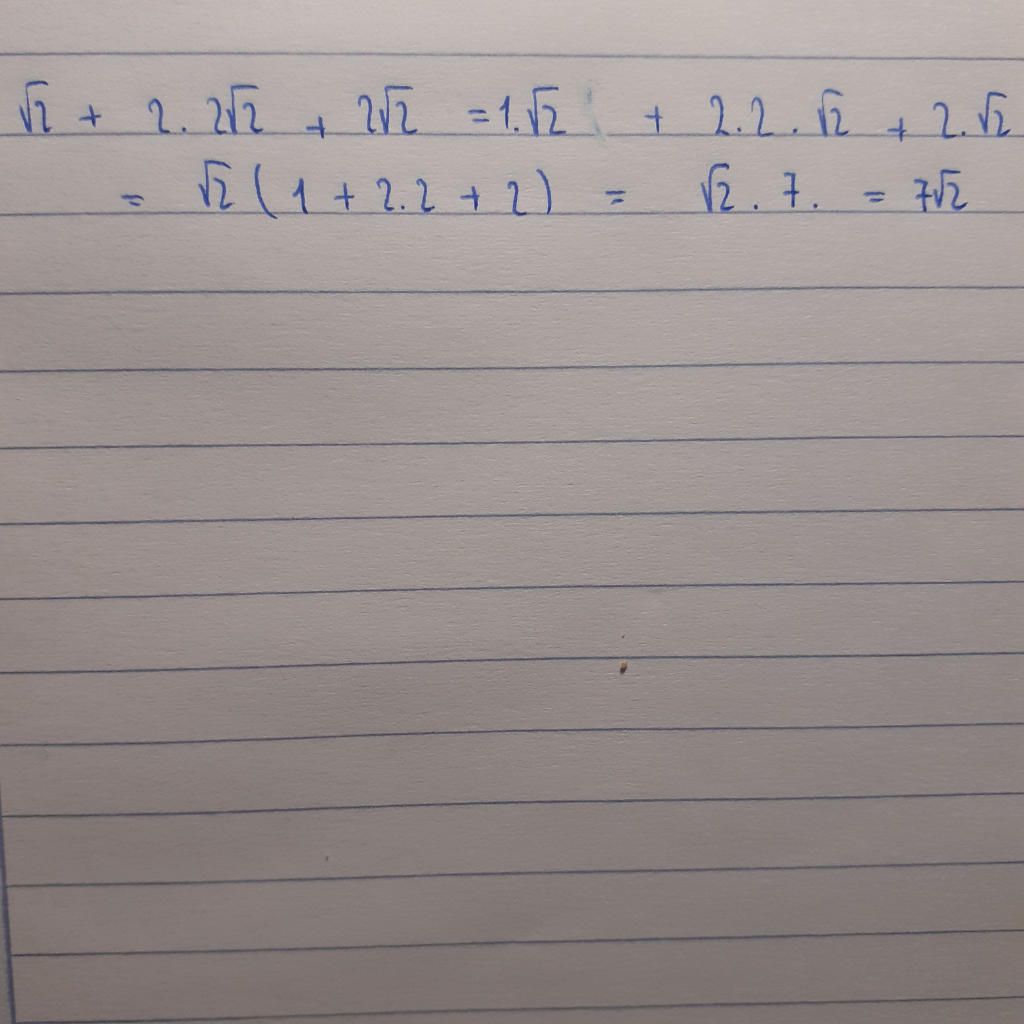 √2 + 2. 2√2 + 2√2 = 1.√2 + 2.2.√2 + 2.√2
= √2 ( 1 + 2.2 + 2 ) = √2 . 7. = 7√2